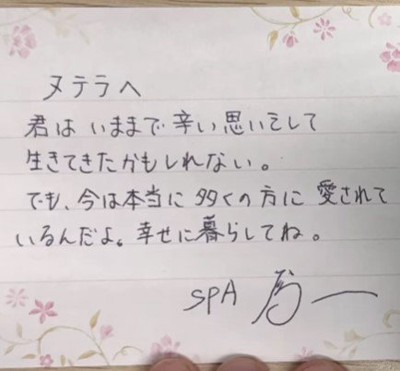 ヌテラへ
君はいままで辛い思いをして
生きてきたかもしれない。
でも、今は本当に多くの方に愛されて
いるんだよ。幸せに暮らしてね。
SPA